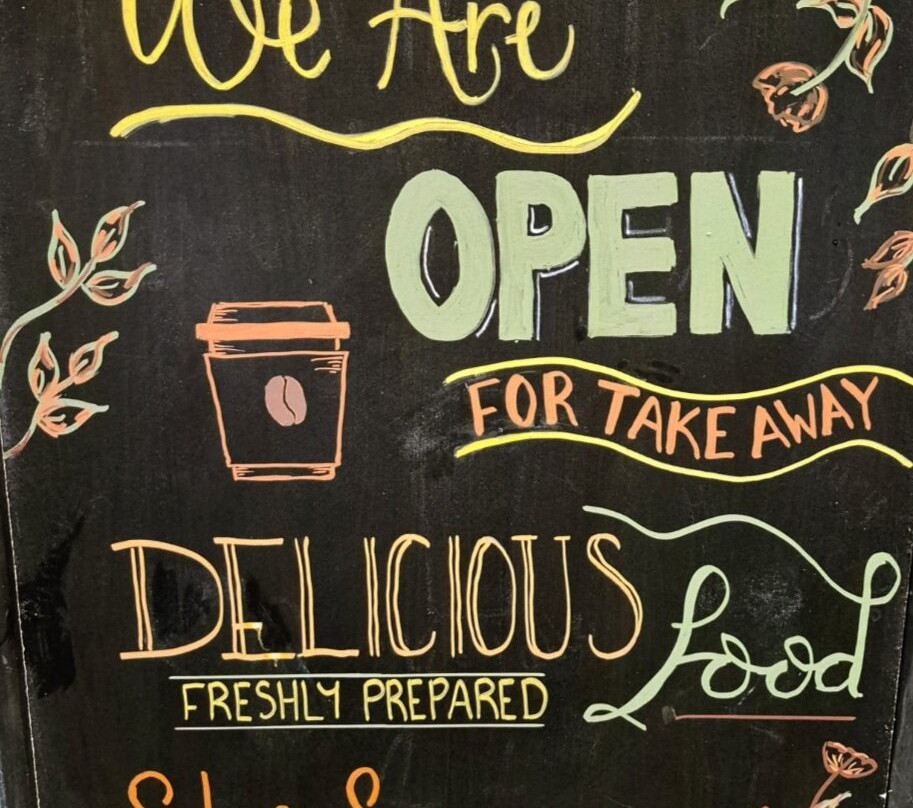 We Are
OPEN
FOR TAKE AWAY
DELICIOUS
Food
FRESHLY PREPARED